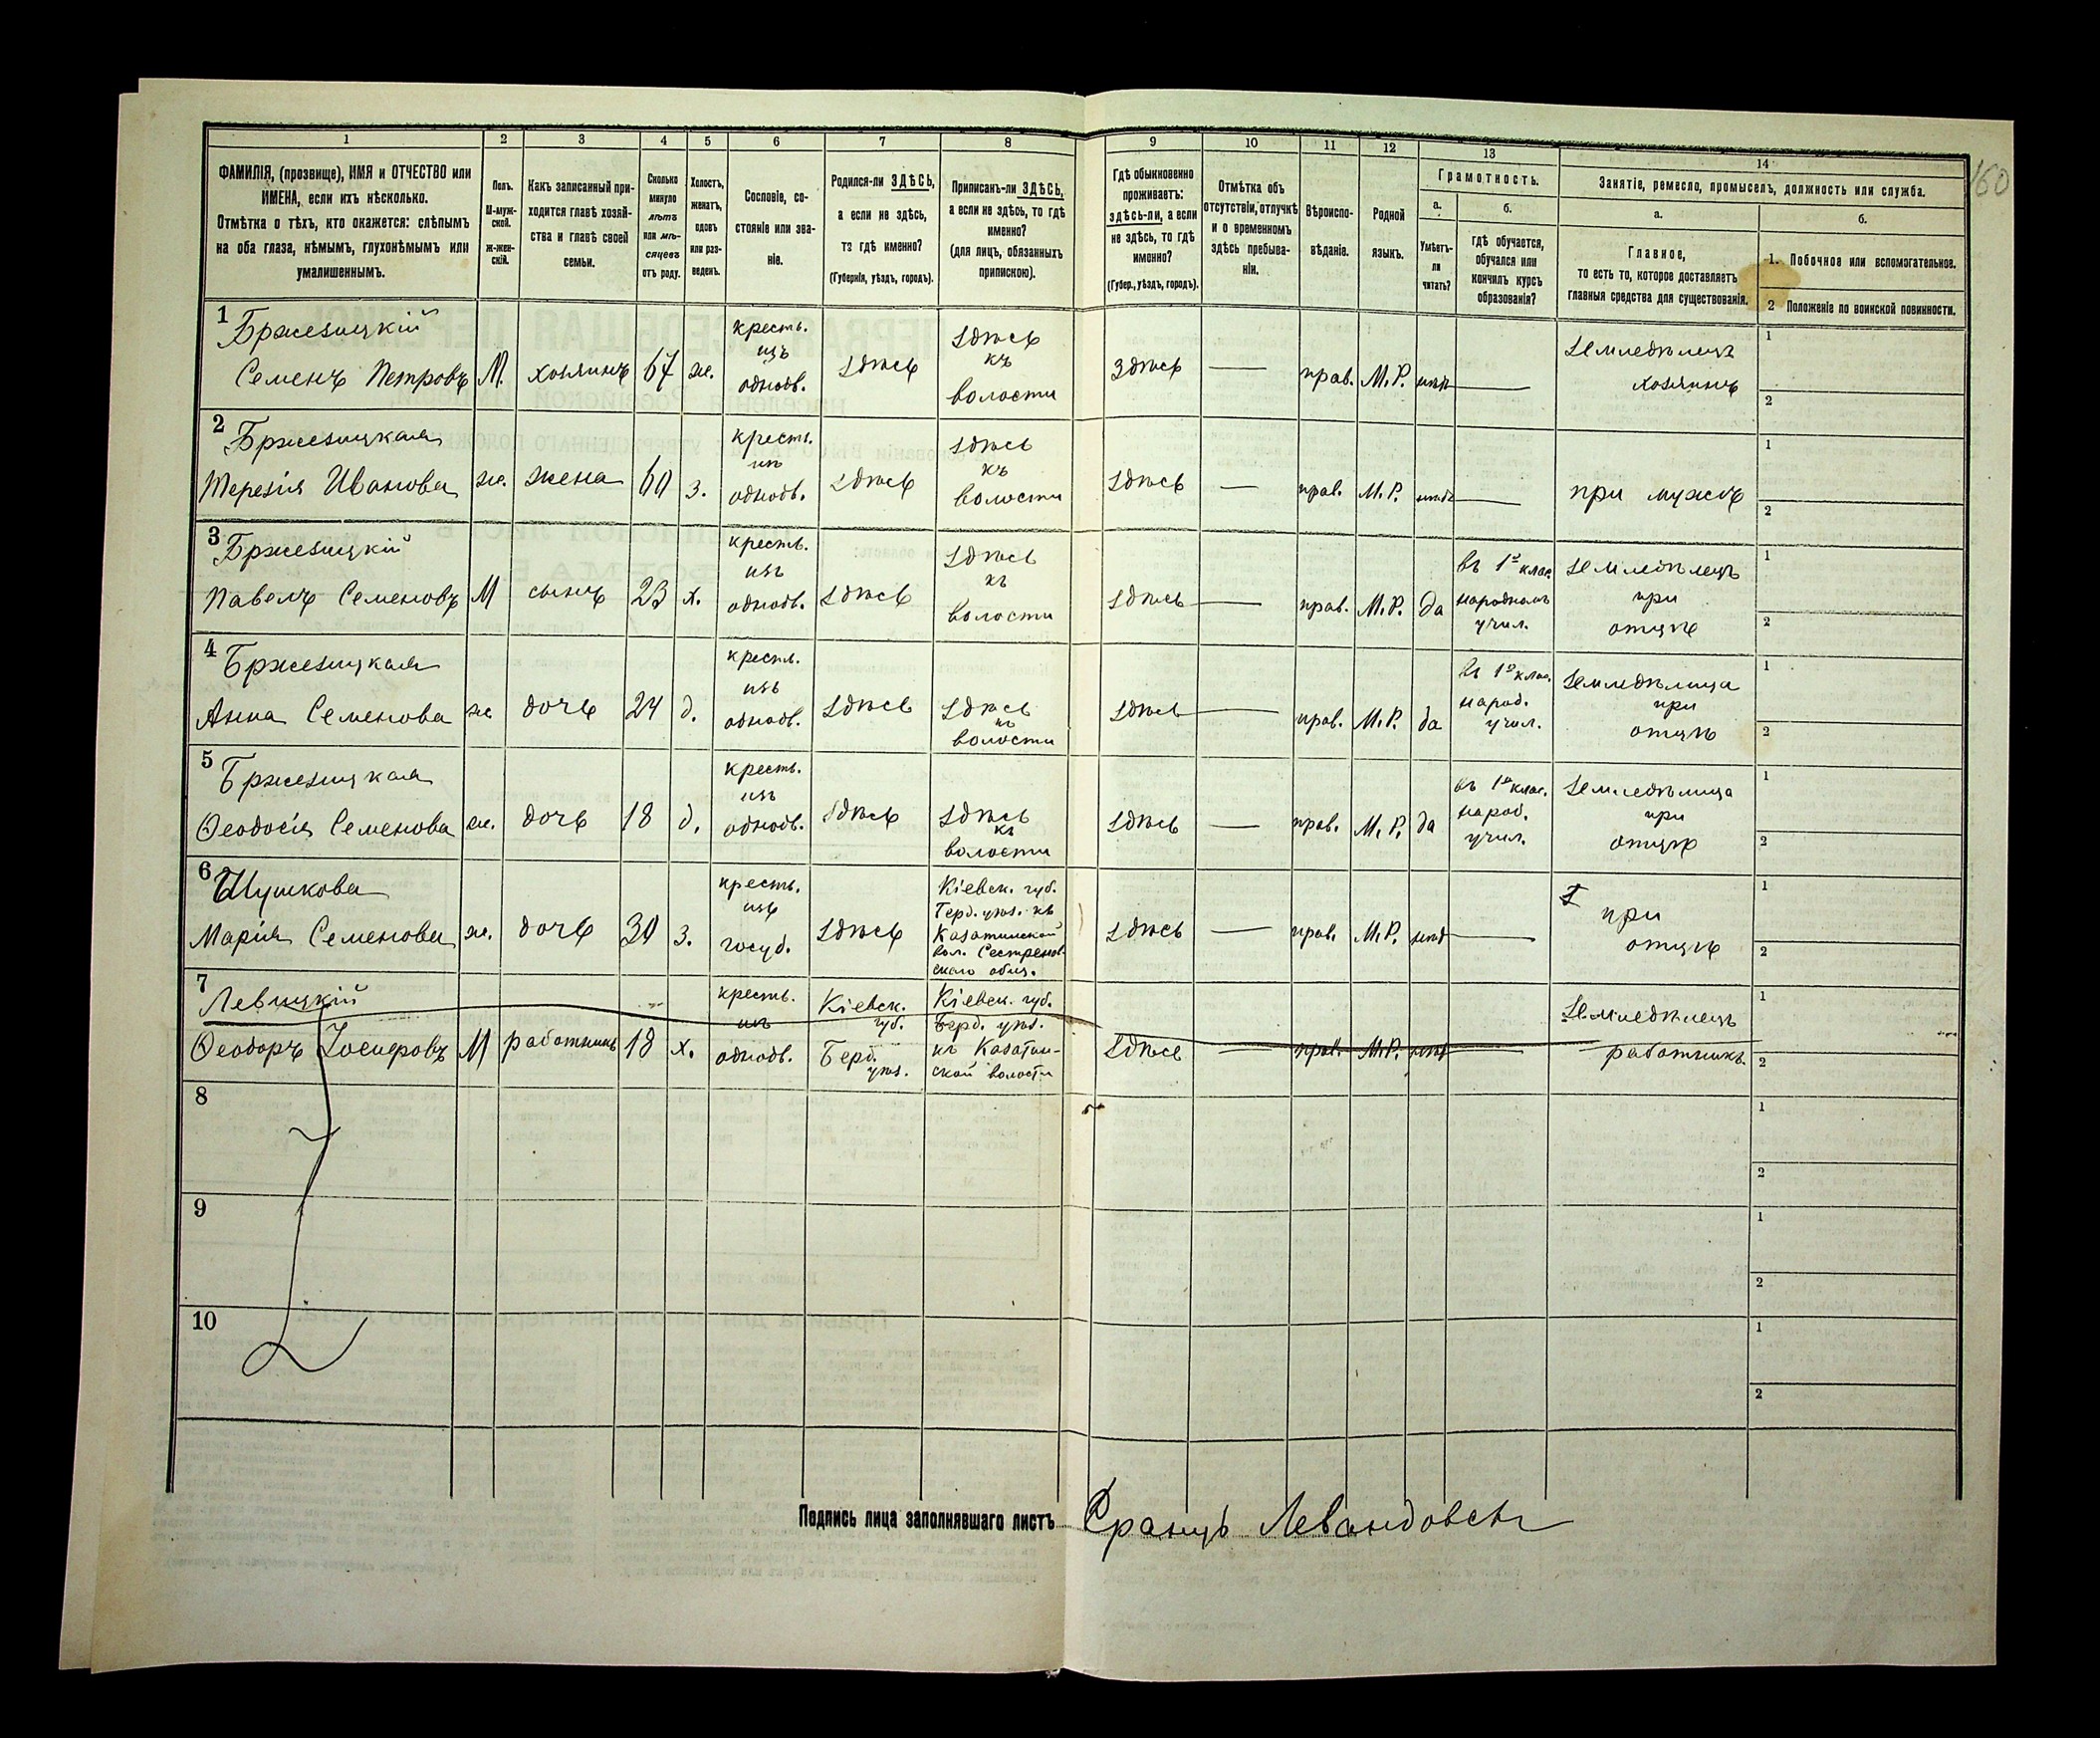 160
1 2 3 4 5 6 7 8 9 10 11 12 13 14
ФАМИЛІЯ, (прозвище), ИМЯ и ОТЧЕСТВО или
ИМЕНА, если ихъ нѣсколько.
Отмѣтка о тѣхъ, кто окажется: слѣпымъ
на оба глаза, нѣмымъ, глухонѣмымъ или
умалишеннымъ.
Полъ.
М-муж-
ской.
ж-жен-
скій.
Какъ записанный при-
ходится главѣ хозяй-
ства и главѣ своей
семьи.
Сколько
минуло
лѣтъ
или мѣ-
сяцевъ
отъ роду.
Холостъ,
женатъ,
вдовъ
или раз-
веденъ.
Сословіе, со-
стояніе или зва-
ніе.
Родился-ли ЗДѢСЬ,
а если не здѣсь,
то гдѣ именно?
(Губернія, уѣздъ, городъ).
Приписанъ-ли ЗДѢСЬ,
а если не здѣсь, то гдѣ
именно?
(для лицъ, обязанныхъ
припискою).
Гдѣ обыкновенно
проживаетъ:
здѣсь-ли, а если
не здѣсь, то гдѣ
именно?
(Губер., уѣздъ, городъ).
Отмѣтка объ
отсутствіи, отлучкѣ
и о временномъ
здѣсь пребыва-
ніи.
Вѣроиспо-
вѣданіе.
Родной
языкъ.
Грамотность.
а.
Умѣетъ-
ли
читать?
б.
гдѣ обучается,
обучался или
кончилъ курсъ
образованія?
Занятіе, ремесло, промыселъ, должность или служба.
а.
Главное,
то есть то, которое доставляетъ
главныя средства для существованія.
б.
1. Побочное или вспомогательное.
2 Положеніе по воинской повинности.
1 Бржезицкій
Семенъ Петровъ М. хозяинъ 67 ж.
кресть.
изъ
однодв.
здѣсь
здѣсь
къ
волости
здѣсь — прав. М.Р. нѣтъ —
земледѣлецъ
хозяинъ
1
2
2 Бржезицкая
Терезія Иванова ж. жена 60 з.
кресть.
изъ
однодв.
здѣсь
здѣсь
къ
волости
здѣсь — прав. М.Р. нѣтъ —
при мужѣ
1
2
3 Бржезицкій
Павелъ Семеновъ М сынъ 23 х.
кресть.
изъ
однодв.
здѣсь
здѣсь
къ
волости
здѣсь — прав. М.Р. да
въ 1 клас.
народномъ
учил.
земледѣлецъ
при
отцѣ
1
2
4 Бржезицкая
Анна Семенова ж дочь 24 д.
кресть.
изъ
однодв.
здѣсь
здѣсь
къ
волости
здѣсь — прав. М.Р. да
въ 1 клас.
народ.
учил.
земледѣлица
при
отцѣ
1
2
5 Бржезицкая
Ѳеодосія Семенова ж. дочь 18 д.
кресть.
изъ
однодв.
здѣсь
здѣсь
къ
волости
здѣсь — прав. М.Р. да
въ 1 клас.
народ.
учил.
земледѣлица
при
отцѣ
1
2
6 Шушкова
Марія Семенова ж. дочь 30 з.
кресть.
изъ
госуд.
здѣсь
Кіевск. губ.
Берд. уѣз. къ
Казатинской
вол. Сестренов-
скаго общ.
здѣсь — прав. М.Р. нѣт —
при
отцѣ
1
2
7 Левицкій
Ѳеодоръ Іосиѳовъ М работникъ 18 х.
кресть.
изъ
однодв.
Кіевск.
губ.
Берд.
уѣз.
Кіевск. губ.
Берд. уѣз.
къ Казатин-
ской волости
здѣсь — прав. М.Р. нѣт —
земледѣлецъ
работникъ.
1
2
8
1
2
9
1
2
10
1
2
Подпись лица заполнявшаго листъ Францъ Левандовскі